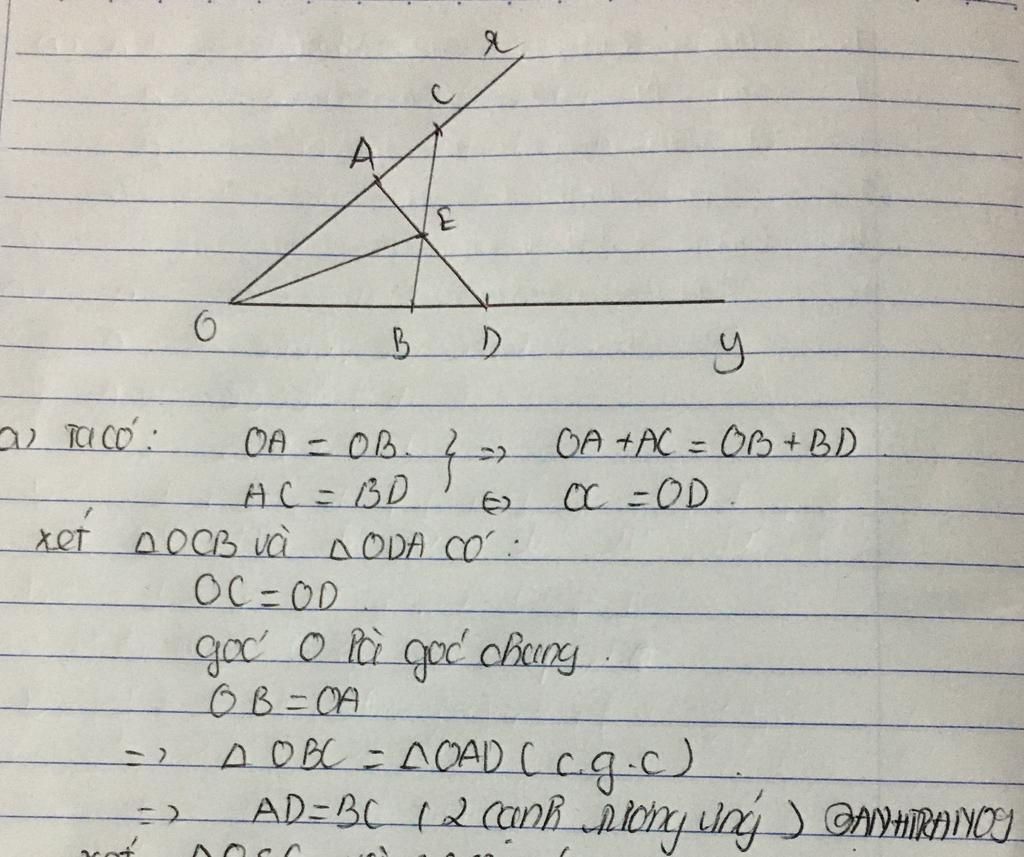 x
C
A
E
O
B D y
a) Ta có: OA = OB. } => OA + AC = OB + BD
AC = BD <=> OC = OD.
xét ΔOCB và ΔODA có:
OC = OD
góc O là góc chung.
OB = OA
=> ΔOBC = ΔOAD (c.g.c).
=> AD = BC (2 cạnh tương ứng)
xét